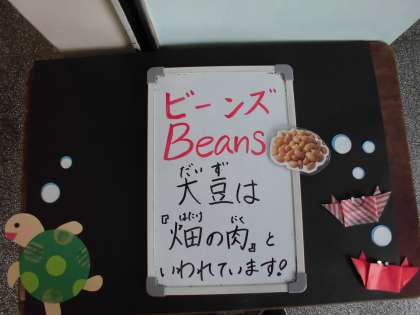 ビーンズ
Beans
だいず
大豆は
はたけ にく
『畑の肉』と
いわれています!